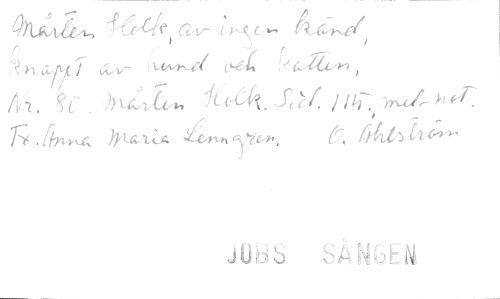 Mårten Holk, av ingen känd,
knappt av hund och katten,
Nr. 80. Mårten Holk. Sid. 115, med not.
Tx. Anna Maria Lenngren. O. Åhlström
JOBS SÅNGEN